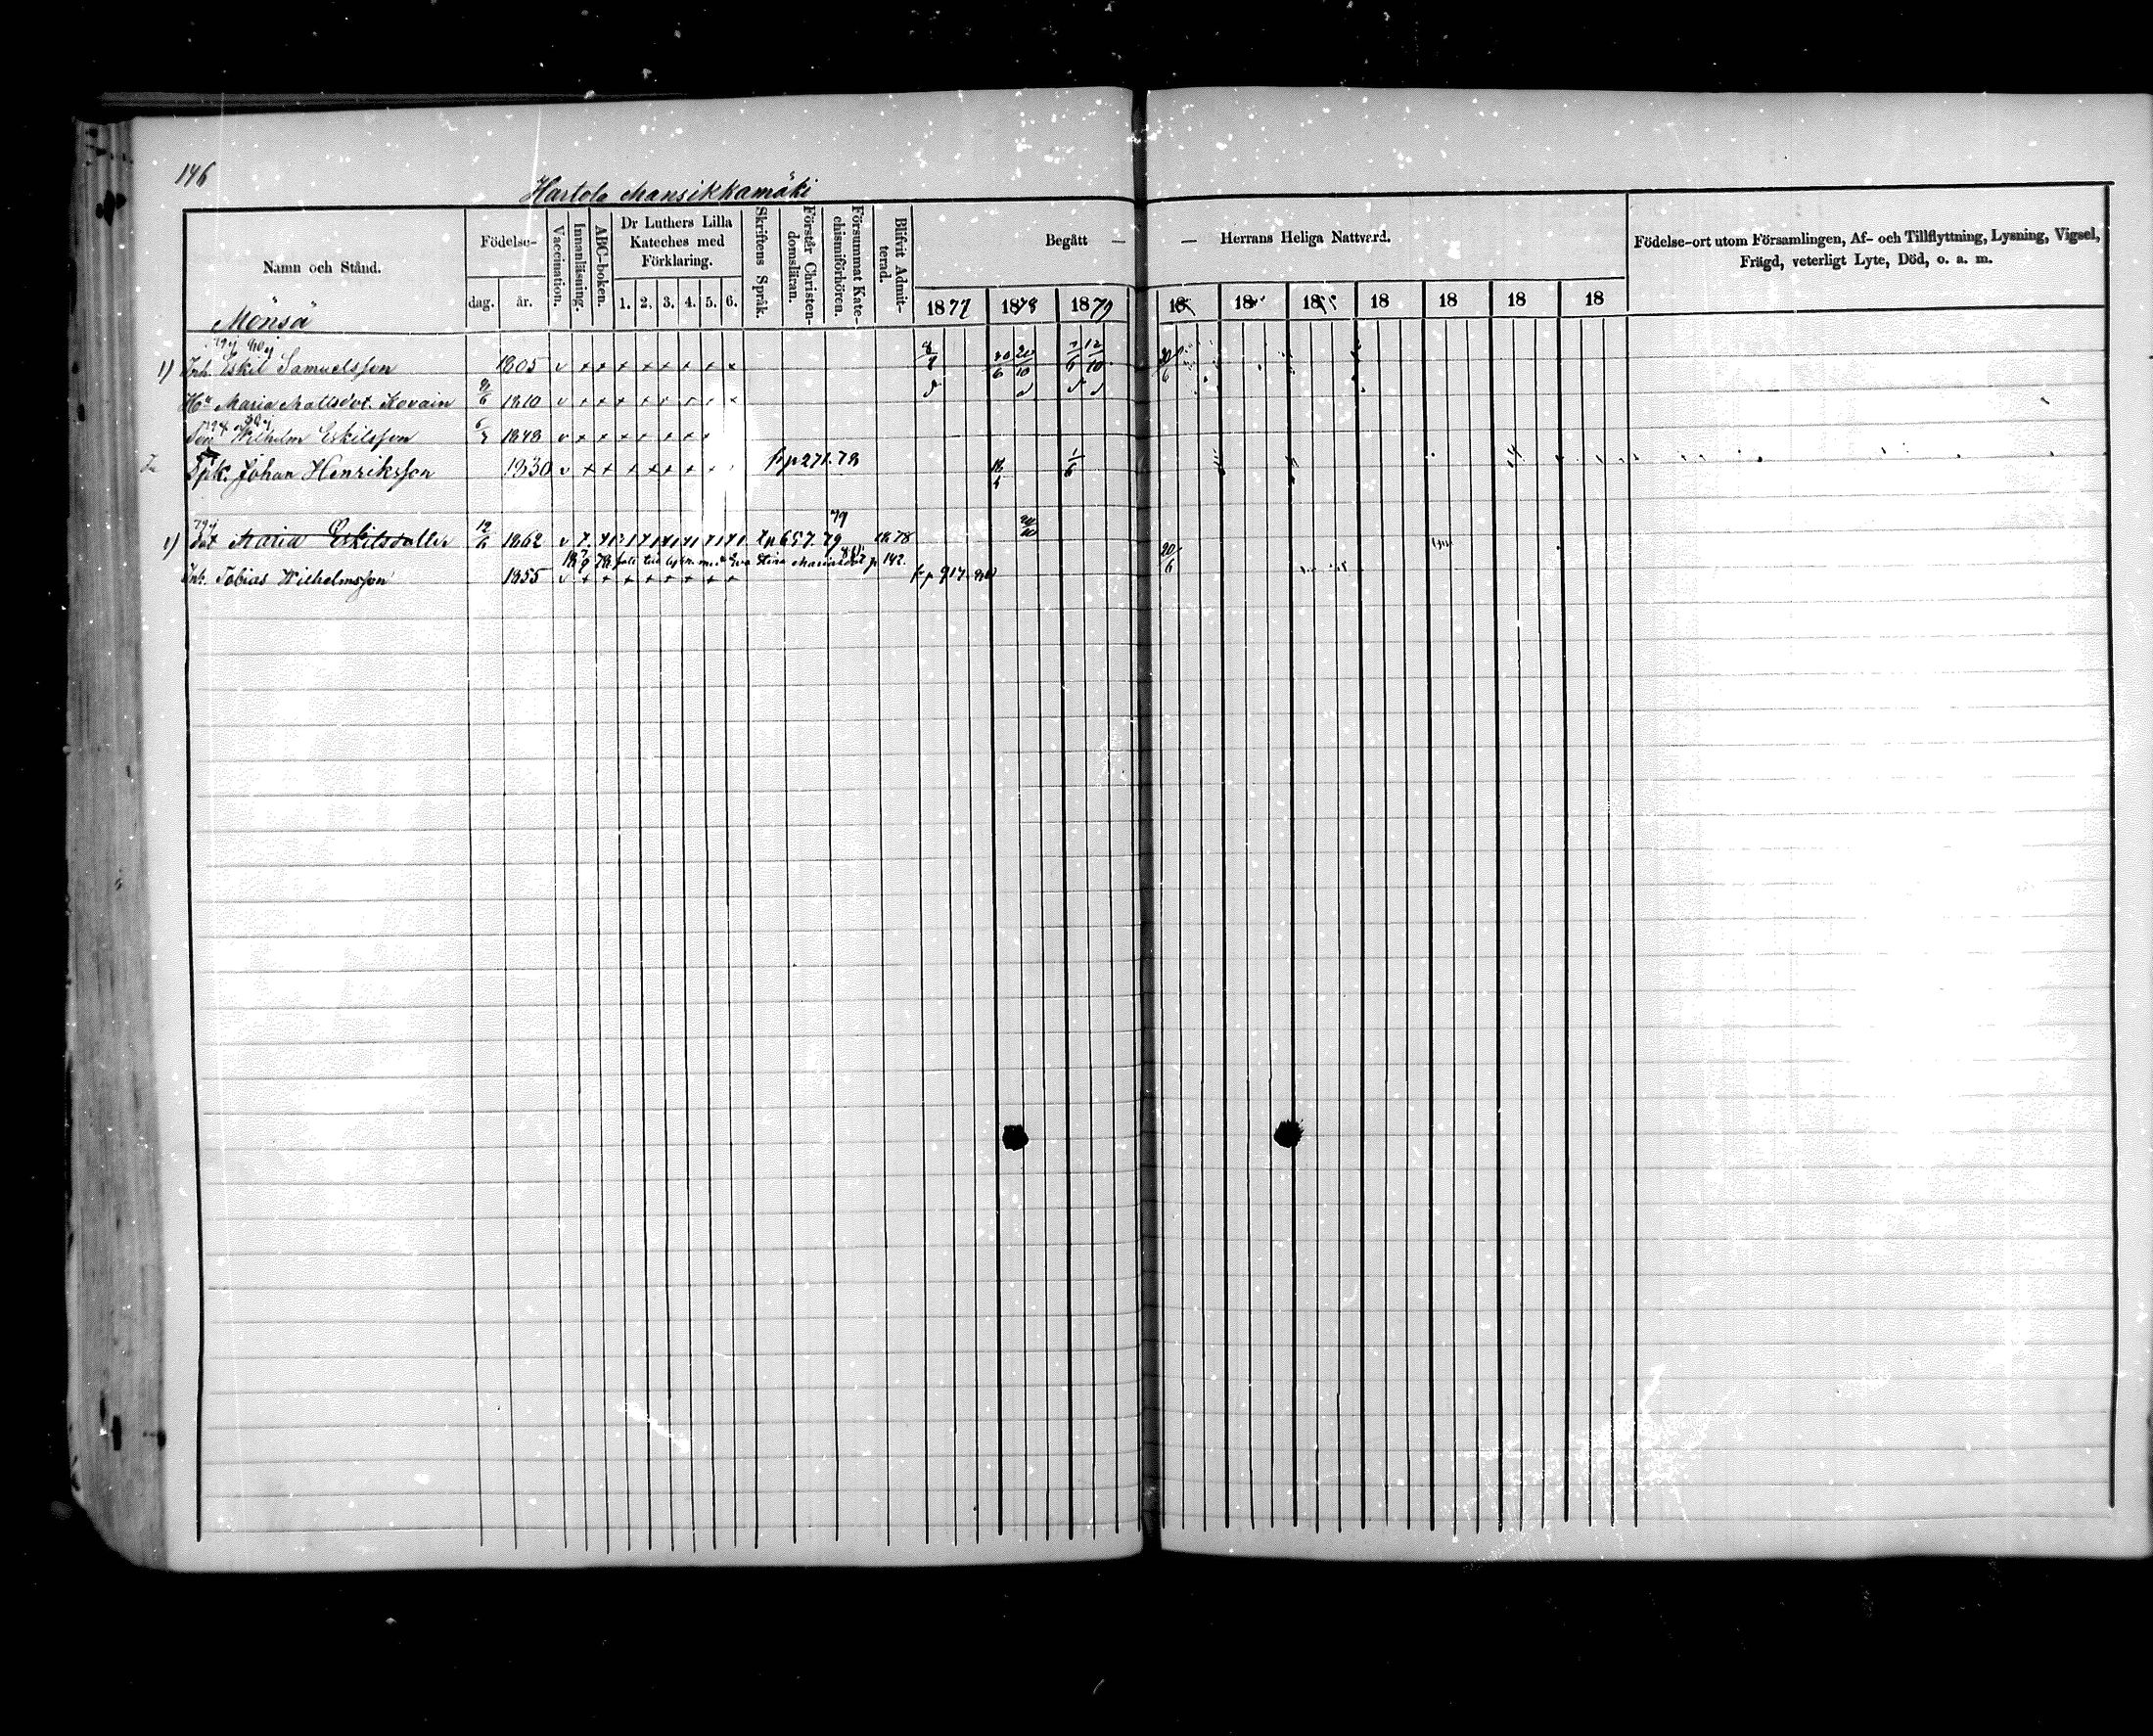 146
Hartola Mansikkamäki
Namn och Stånd.
Födelse-
dag. år.
Vaccination.
Innanläsning.
ABC-boken.
Dr Luthers Lilla
Kateches med
Förklaring.
1. 2. 3. 4. 5. 6.
Skriftens Språk.
Förstår Christen-
domsläran.
Försummat Kate-
chismiförhören.
Blifvit Admit-
terad.
Begått — — Herrans Heliga Nattvard.
1877 1878 1879 18 18 18 18 18 18 18
Födelse-ort utom Församlingen, Af- och Tillflyttning, Lysning, Vigsel,
Frägd, veterligt Lyte, Död, o. a. m.
Mönsä
1) Inh. Eskil Samuelsson 1805 v × × × × × × × × 8/9 20/6 20/10 7/6 12/10 20/6
Hu Maria Mattsdot. Kovain 8/6 1810 v × × × × × × × ×
Son Wilhelm Eskilsson 6/7 1848 v × × × × × × ×
Spk. Johan Henriksson 1830 v × × × × × × × fr p 271. 78 18/4 1/6
79
1) dot Maria Eskilsdotter 12/6 1862 v t p 657. 79 1878 20/10
78 med Eva Stina p 142.
Inh. Tobias Wilhelmsson 1855 v × × × × × × × × fr p 917 20/6